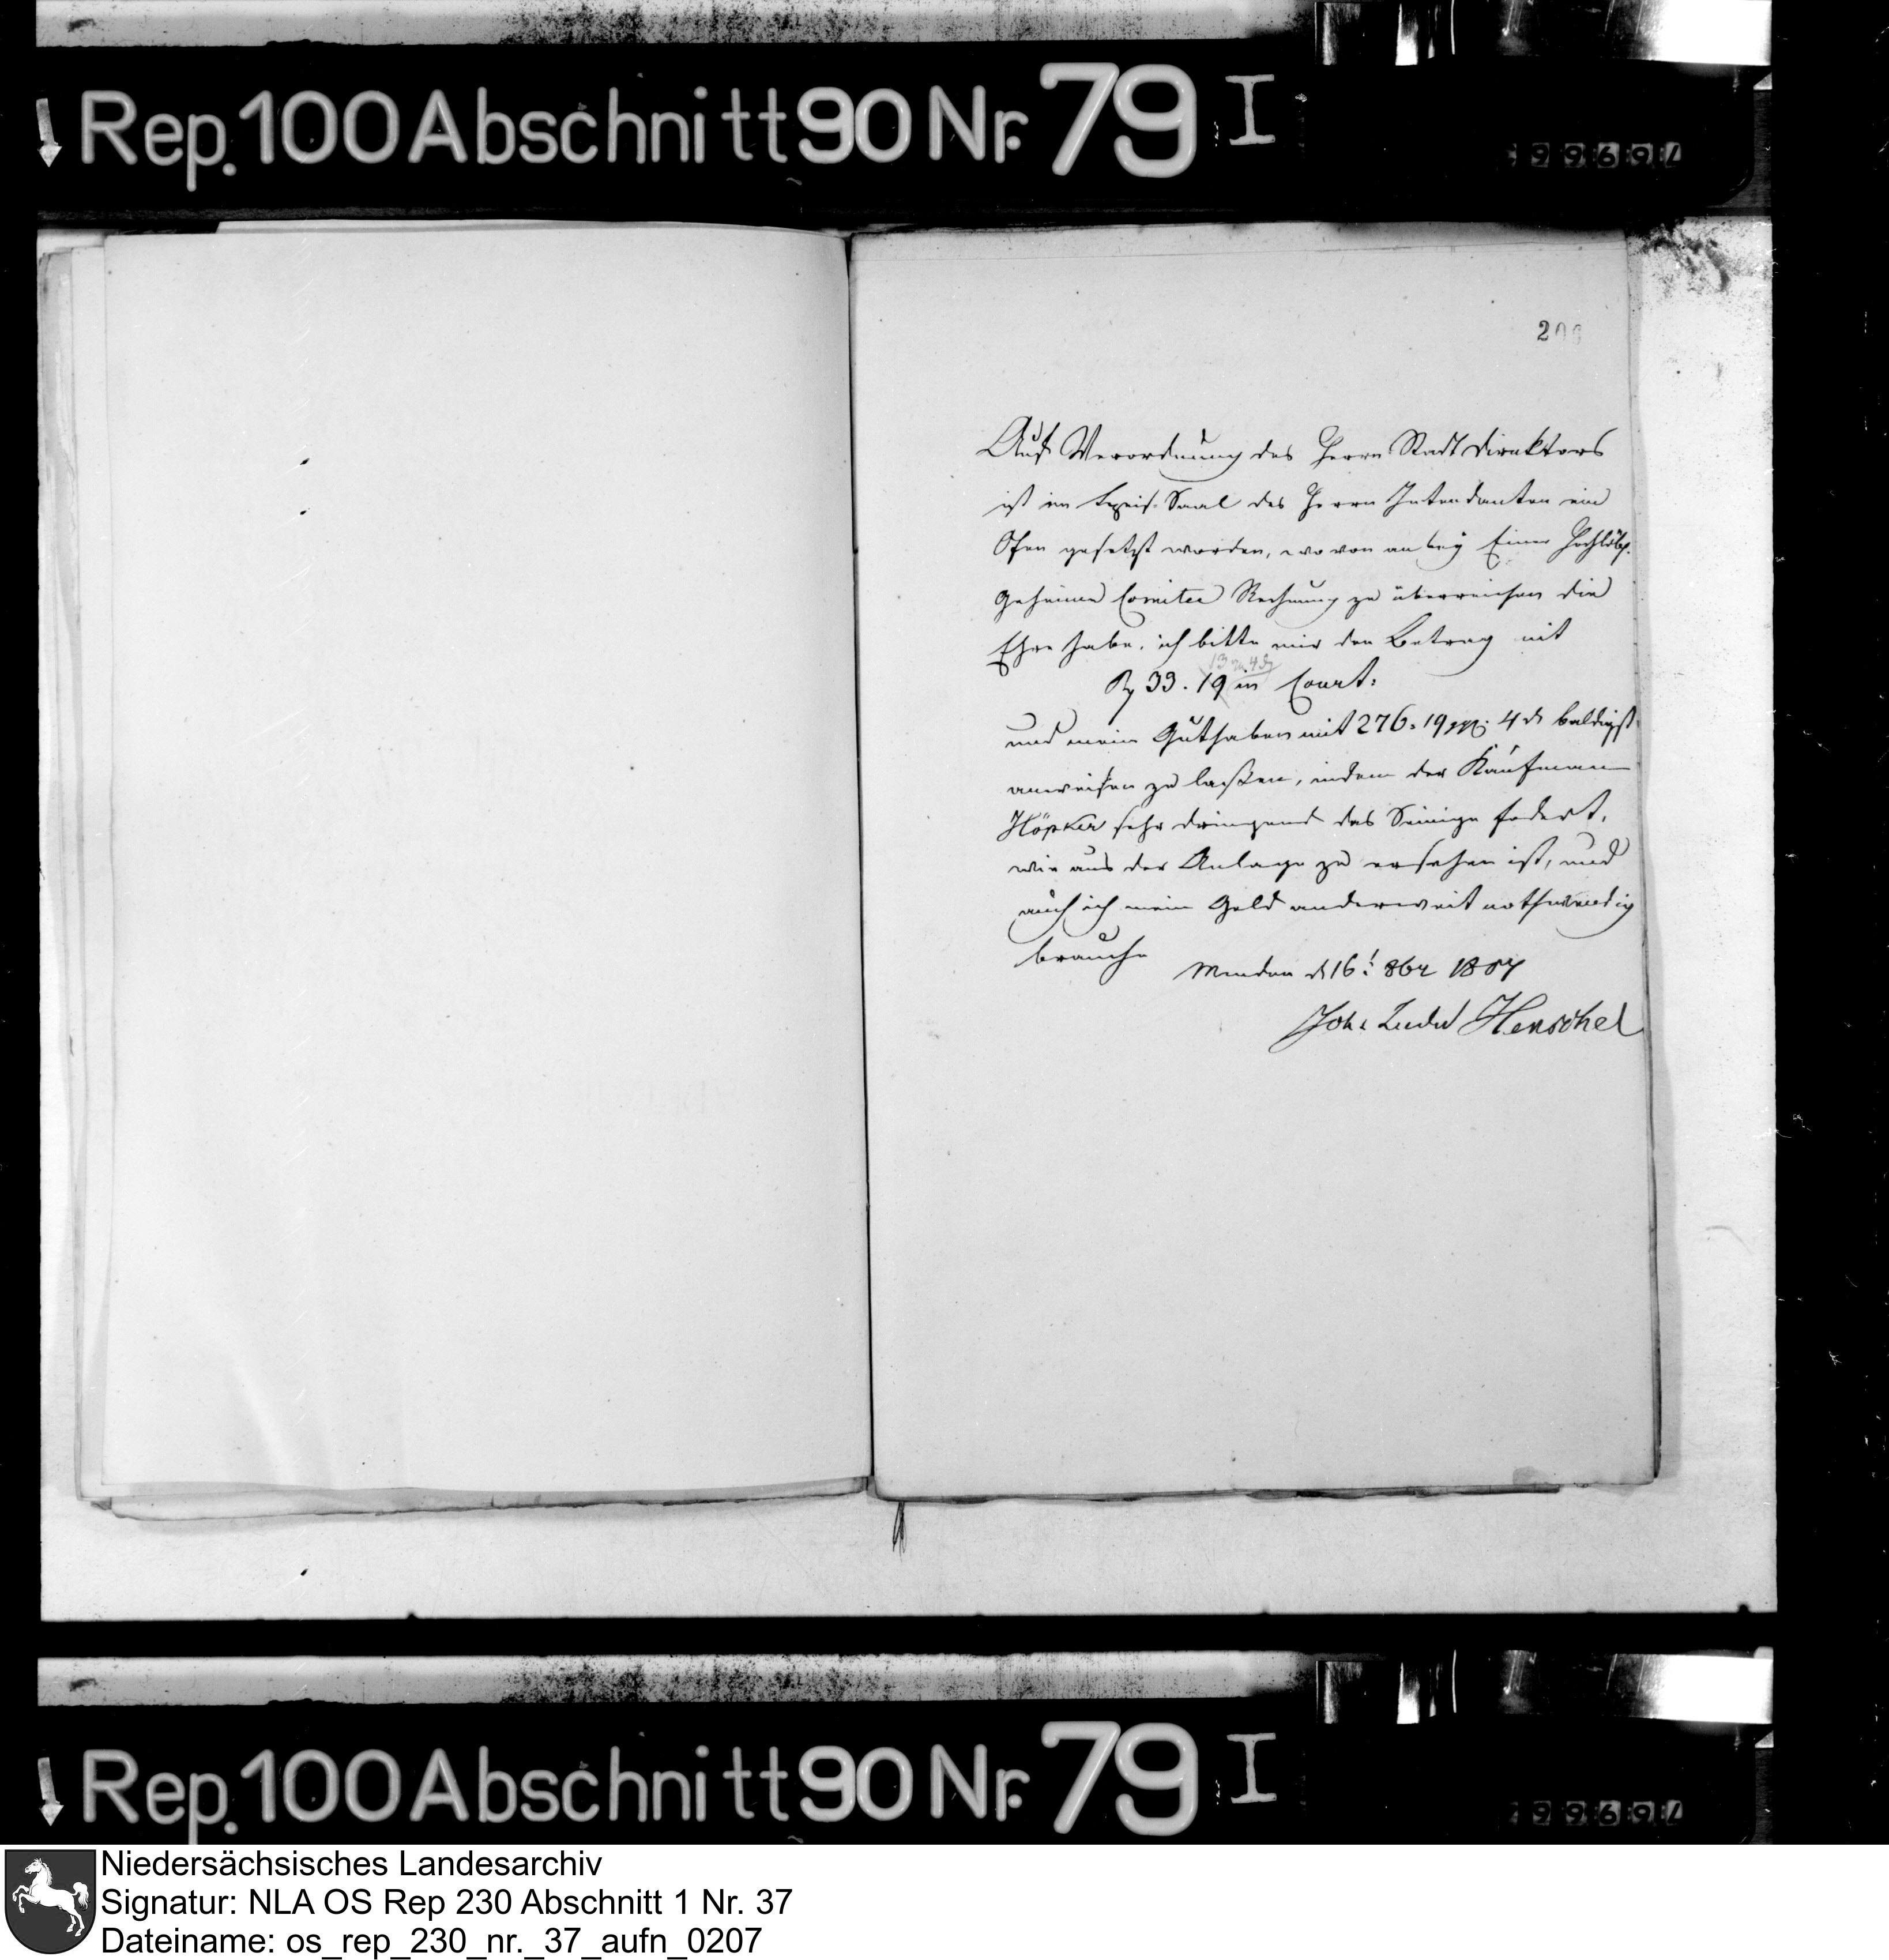 Rep. 100 Abschnitt 90 Nr. 79 I
200
Auf Verordnung des Herrn Stadt Direktors
ist im Speis-Saal des Herrn Intendanten ein
Ofen gesetzt worden, wovon anbey Einer Hochlöbl.
Geheimen Comitee Rechnung zu überreichen die
Ehre habe. ich bitte mir den Betrag mit
13 4
33. 19 Court:
und mein Guthaben mit 276. 19 4 d baldigst
anweisen zu laßen, indem der Kaufmann
Höpker sehr dringend das Seinige fodert,
wie aus der Anlage zu ersehen ist, und
auch ich mein Geld anderweit nothwendig
brauche
Minden d 16t 8br 1807
Joh. Ludw Henschel
Rep. 100 Abschnitt 90 Nr. 79 I
Niedersächsisches Landesarchiv
Signatur: NLA OS Rep 230 Abschnitt 1 Nr. 37
Dateiname: os_rep_230_nr._37_aufn_0207